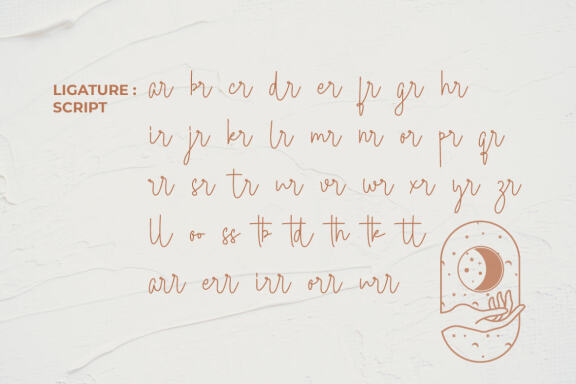 LIGATURE :
SCRIPT
ar br cr dr er fr gr hr
ir jr kr lr mr nr or pr qr
rr sr tr ur vr wr xr yr zr
ll oo ss tb td th tk tt
arr err irr orr urr